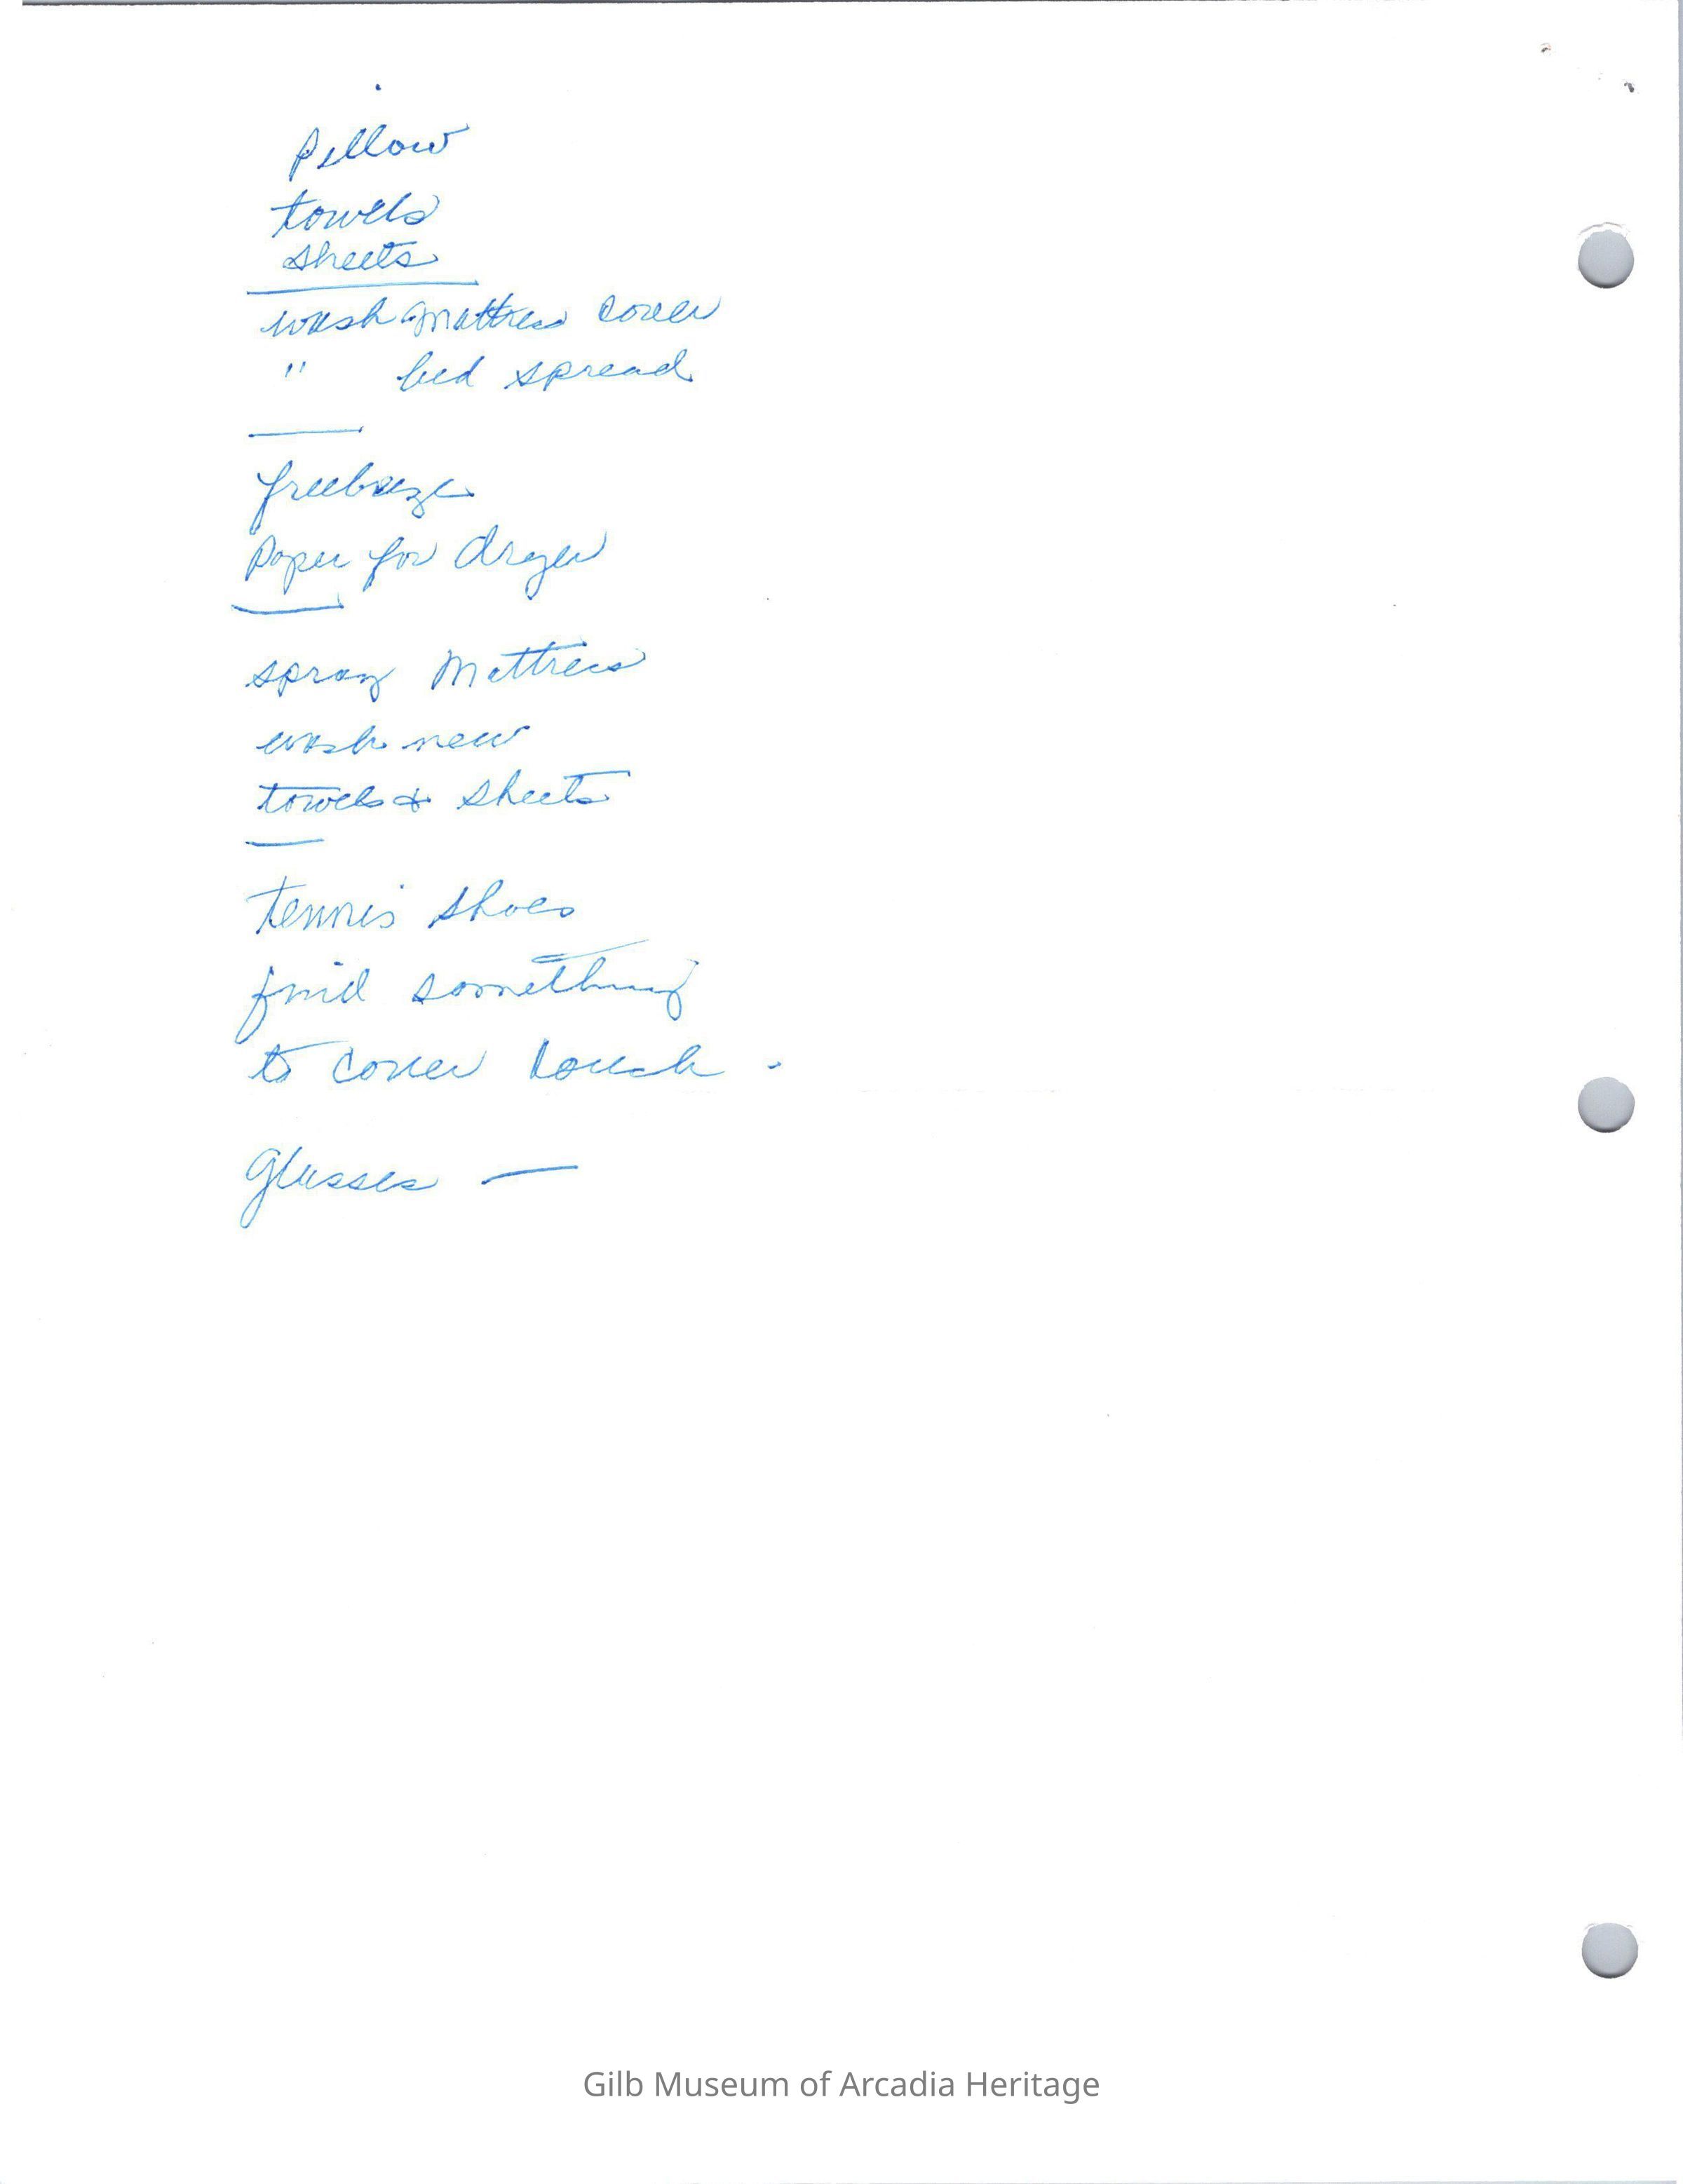 pillow
towels
sheets
wash mattress cover
" bed spread
freebreeze
paper for dryer
spray Mattress
wash new
towels & sheets
tennis shoes
find something
to cover couch -
glasses —
Gilb Museum of Arcadia Heritage